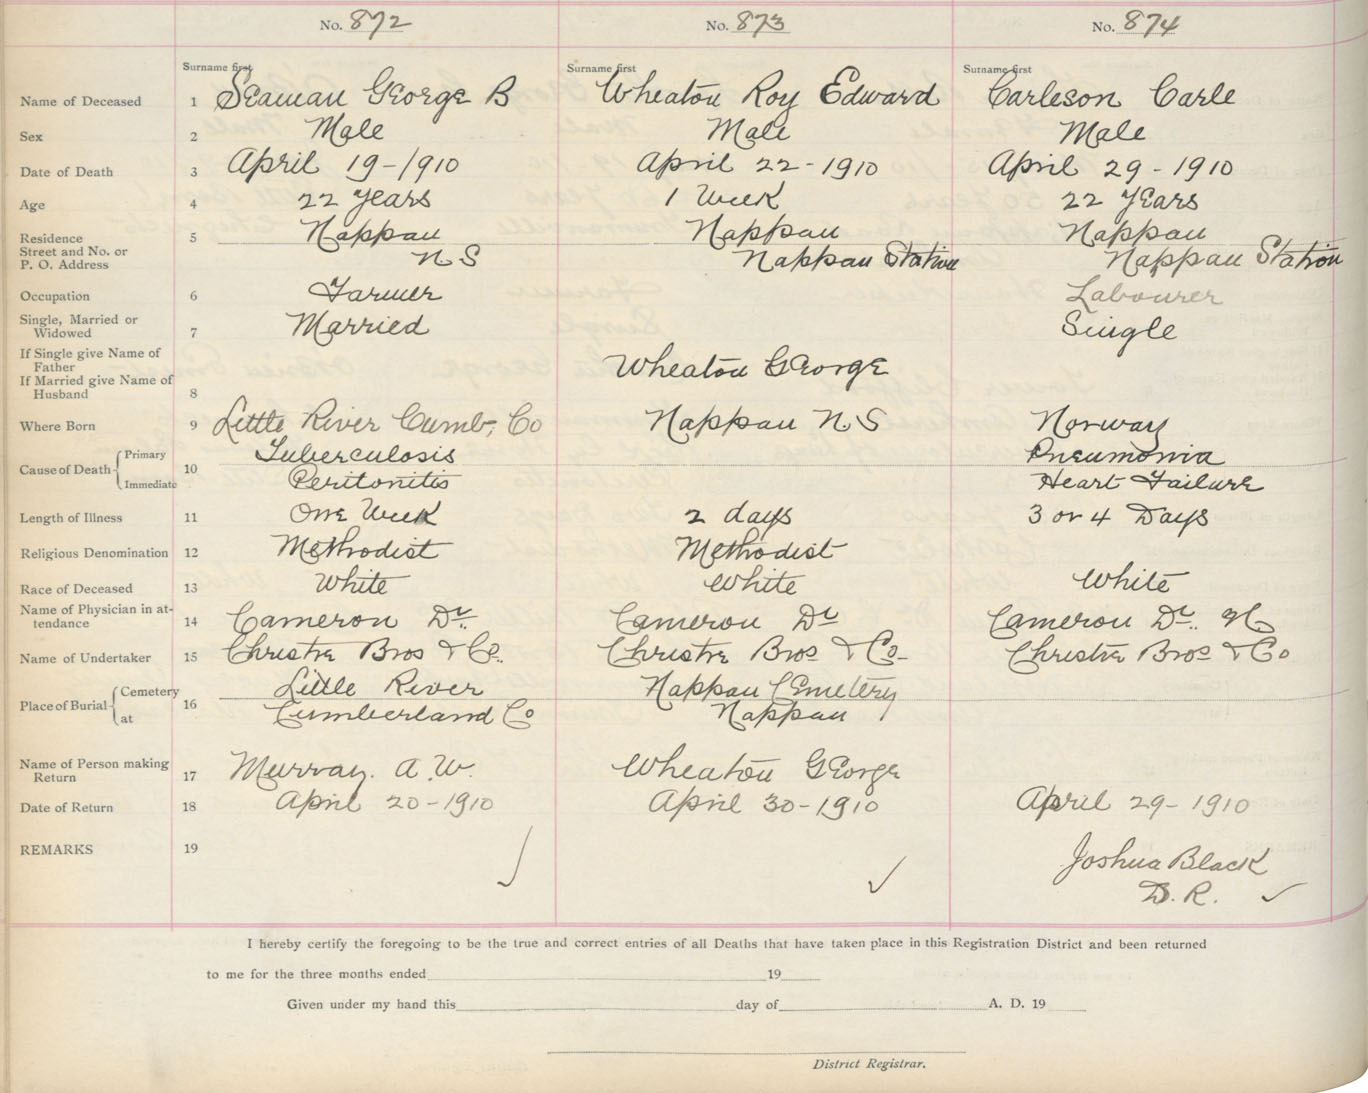 No. 872 No. 873 No. 874
Surname first Surname first Surname first
Name of Deceased 1 Seaman George B Wheaton Roy Edward Carleson Carle
Sex 2 Male Male Male
Date of Death 3 April 19-1910 April 22-1910 April 29-1910
Age 4 22 Years 1 Week 22 Years
Residence 5 Nappan Nappan Nappan
Street and No. or
P. O. Address N S Nappan Station Nappan Station
Occupation 6 Farmer Labourer
Single, Married or
Widowed 7 Married Single
If Single give Name of
Father
If Married give Name of
Husband 8 Wheaton George
Where Born 9 Little River Cumb, Co Nappan N S Norway
Cause of Death Primary 10 Tuberculosis Pneumonia
Immediate Peritonitis Heart Failure
Length of Illness 11 One Week 2 days 3 or 4 Days
Religious Denomination 12 Methodist Methodist
Race of Deceased 13 White White White
Name of Physician in at-
tendance 14 Cameron Dr. Cameron Dr Cameron Dr.
Name of Undertaker 15 Christie Bros & Co. Christie Bros & Co- Christie Bros & Co
Place of Burial Cemetery 16 Little River Nappan Cemetery
at Cumberland Co Nappan
Name of Person making
Return 17 Murray. A. W. Wheaton George
Date of Return 18 April 20-1910 April 30-1910 April 29-1910
REMARKS 19 Joshua Black
D. R.
I hereby certify the foregoing to be the true and correct entries of all Deaths that have taken place in this Registration District and been returned
to me for the three months ended 19
Given under my hand this day of A. D. 19
District Registrar.